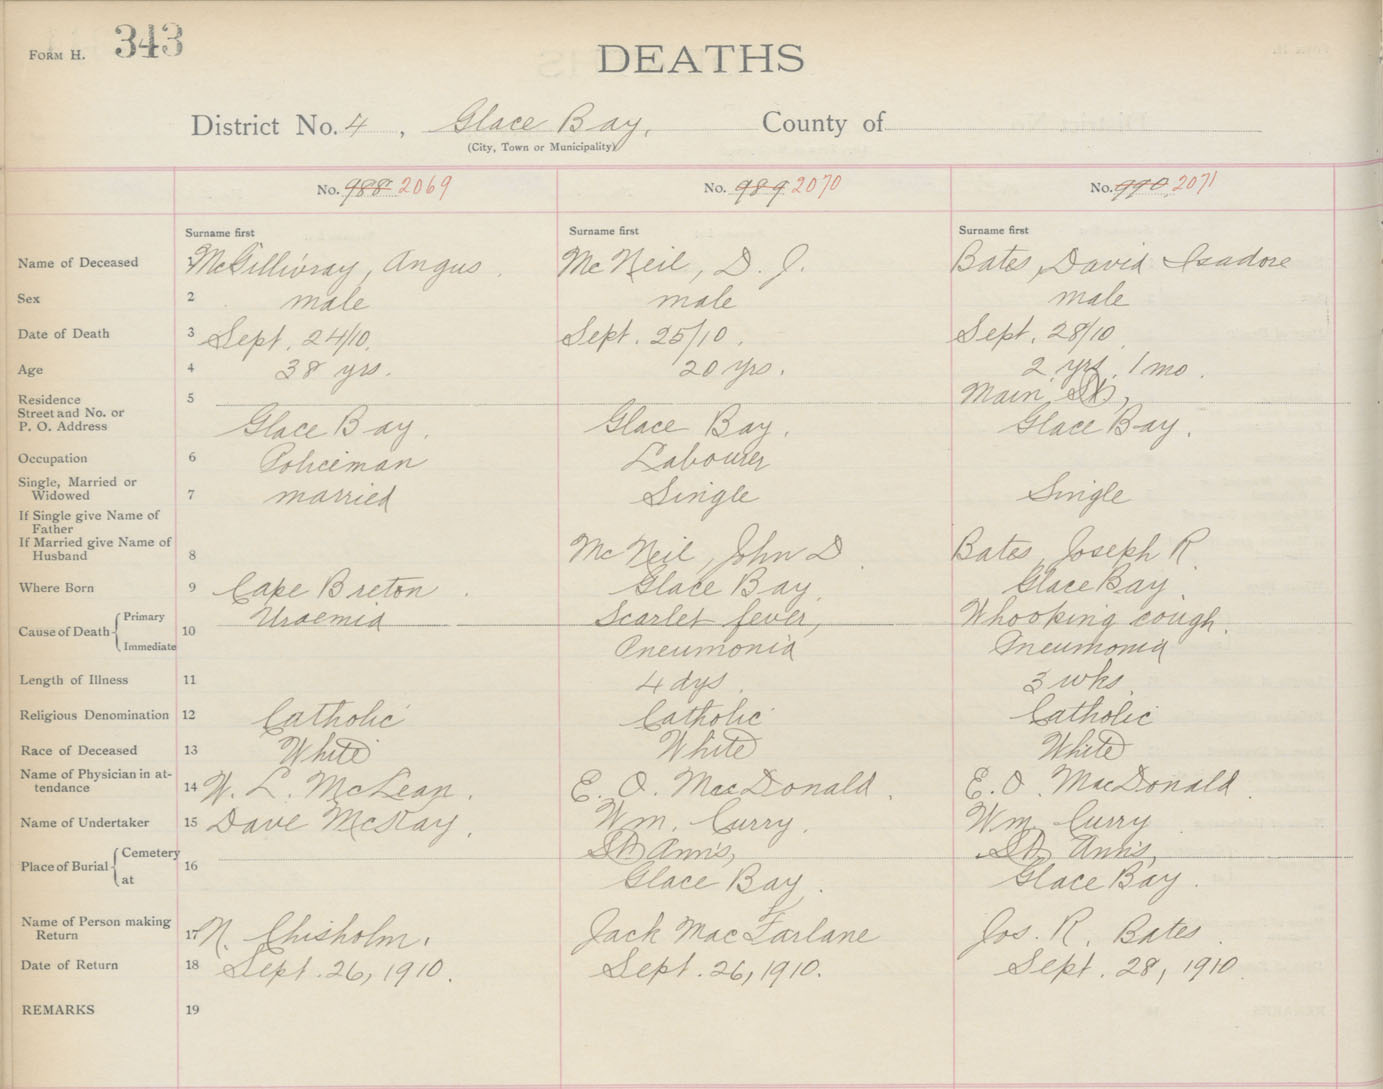 FORM H. 343
DEATHS
District No. 4, Glace Bay, County of
(City, Town or Municipality)
No. 988 2069 No. 989 2070 No. 990 2071
Surname first Surname first Surname first
Name of Deceased 1 McGillivray, Angus. McNeil, D. J. Bates, David Isadore
Sex 2 male male male
Date of Death 3 Sept. 24/10. Sept. 25/10. Sept. 28/10.
Age 4 38 yrs. 20 yrs. 2 yrs. 1 mo.
Residence 5 Main St,
Street and No. or
P. O. Address Glace Bay. Glace Bay. Glace Bay.
Occupation 6 Policeman Labourer
Single, Married or
Widowed 7 married Single Single
If Single give Name of
Father
If Married give Name of
Husband 8 McNeil, John D. Bates, Joseph R.
Where Born 9 Cape Breton. Glace Bay. Glace Bay.
Cause of Death Primary 10 Uraemia Scarlet fever, Whooking cough.
Immediate Pneumonia Pneumonia
Length of Illness 11 4 dys. 3 wks.
Religious Denomination 12 Catholic Catholic Catholic
Race of Deceased 13 White White White
Name of Physician in at-
tendance 14 W. L. McLean. E. O. MacDonald. E. O. MacDonald.
Name of Undertaker 15 Dave McKay. Wm. Curry. Wm. Curry.
Place of Burial Cemetery 16 St Ann's, St. Ann's,
at Glace Bay. Glace Bay.
Name of Person making
Return 17 N. Chisholm. Jack MacFarlane Jos. R. Bates.
Date of Return 18 Sept. 26, 1910. Sept. 26, 1910. Sept. 28, 1910.
REMARKS 19